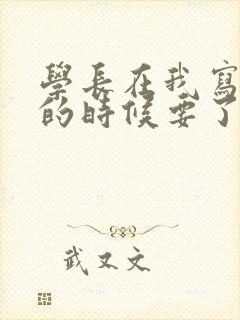 學長在我寫
的時候要了
武又文